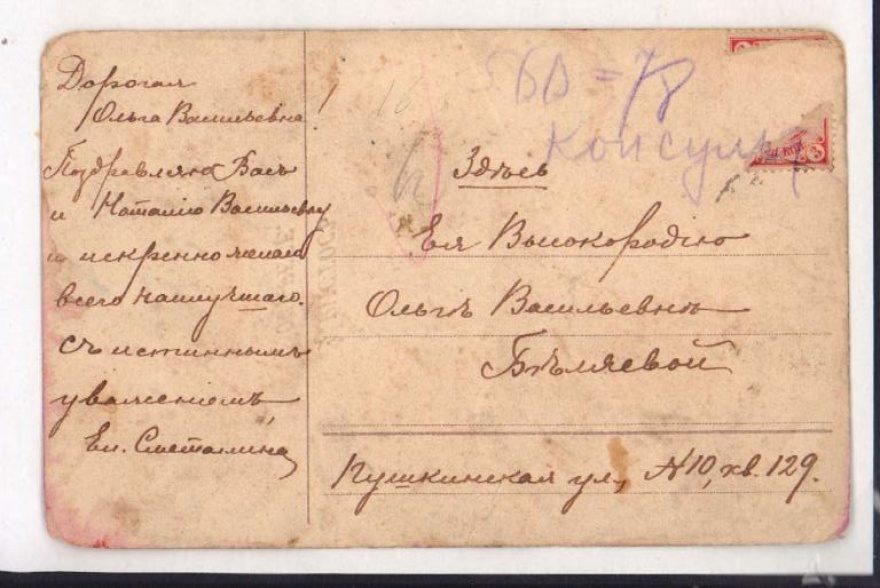 Дорогая
Ольга Васильевна!
Поздравляю Васъ
и Наталію Васильевну
и искренно желаю
всего наилучшаго.
Съ истиннымъ
уваженіемъ,
Ел. Сметанина
5 БВ = 78
Консуль
Здѣсь
Ея Высокородію
Ольгѣ Васильевнѣ
Бѣляевой
Пушкинская ул., №10, кв. 129.